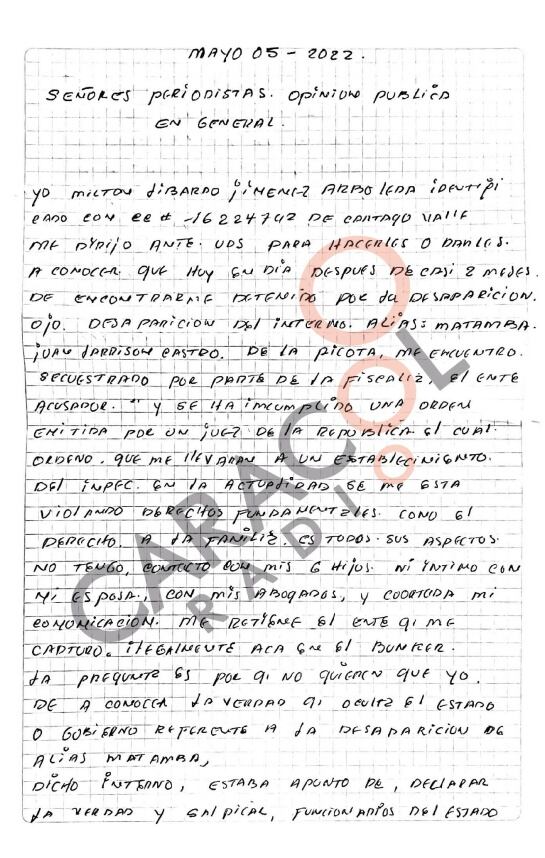 MAYO 05 - 2022.
SEÑORES PERIODISTAS. OPINION PUBLICA
EN GENERAL.
YO MILTON LIBARDO JIMENEZ ARBOLEDA IDENTIFI
CADO CON CC # -16224742 DE CARTAGO VALLE
ME DIRIJO ANTE. UDS PARA HACERLES O DARLES.
A CONOCER QUE HOY EN DIA DESPUES DE CASI 2 MESES.
DE ENCONTRARME DETENIDO POR LA DESAPARICION.
OJO. DESAPARICION DEL INTERNO. ALIAS: MATAMBA.
JUAN LARRISON CASTRO. DE LA PICOTA, ME ENCUENTRO.
SECUESTRADO POR PARTE DE LA FISCALIA, EL ENTE
ACUSADOR. "" Y SE HA IMCUMPLIDO UNA ORDEN
EMITIDA POR UN JUEZ DE LA REPUBLICA EL CUAL.
ORDENO. QUE ME LLEVARAN A UN ESTABLECIMIENTO.
DEL INPEC. EN LA ACTUALIDAD SE ME ESTA
VIOLANDO DERECHOS FUNDAMENTALES. COMO EL
DERECHO. A LA FAMILIA. ES TODOS SUS ASPECTOS.
NO TENGO, CONTECTO CON MIS 6 HIJOS. NI INTIMO CON
MI ESPOSA., CON MIS ABOGADOS, Y COORTADA MI
COMUNICACION. ME RETIENE EL ENTE QI ME
CAPTURO. ILEGALMENTE ACA EN EL BUNKER.
LA PREGUNTE ES POR QI NO QUIEREN QUE YO.
DE A CONOCER LA VERDAD QI OCULTA EL ESTADO
O GOBIERNO REFERENTE A LA DESAPARICION DE
ALIAS MATAMBA,
DICHO INTERNO, ESTABA APUNTO DE, DECLARAR
LA VERDAD Y SALPICAR, FUNCIONARIOS DEL ESTADO
CARACOL
RADIO